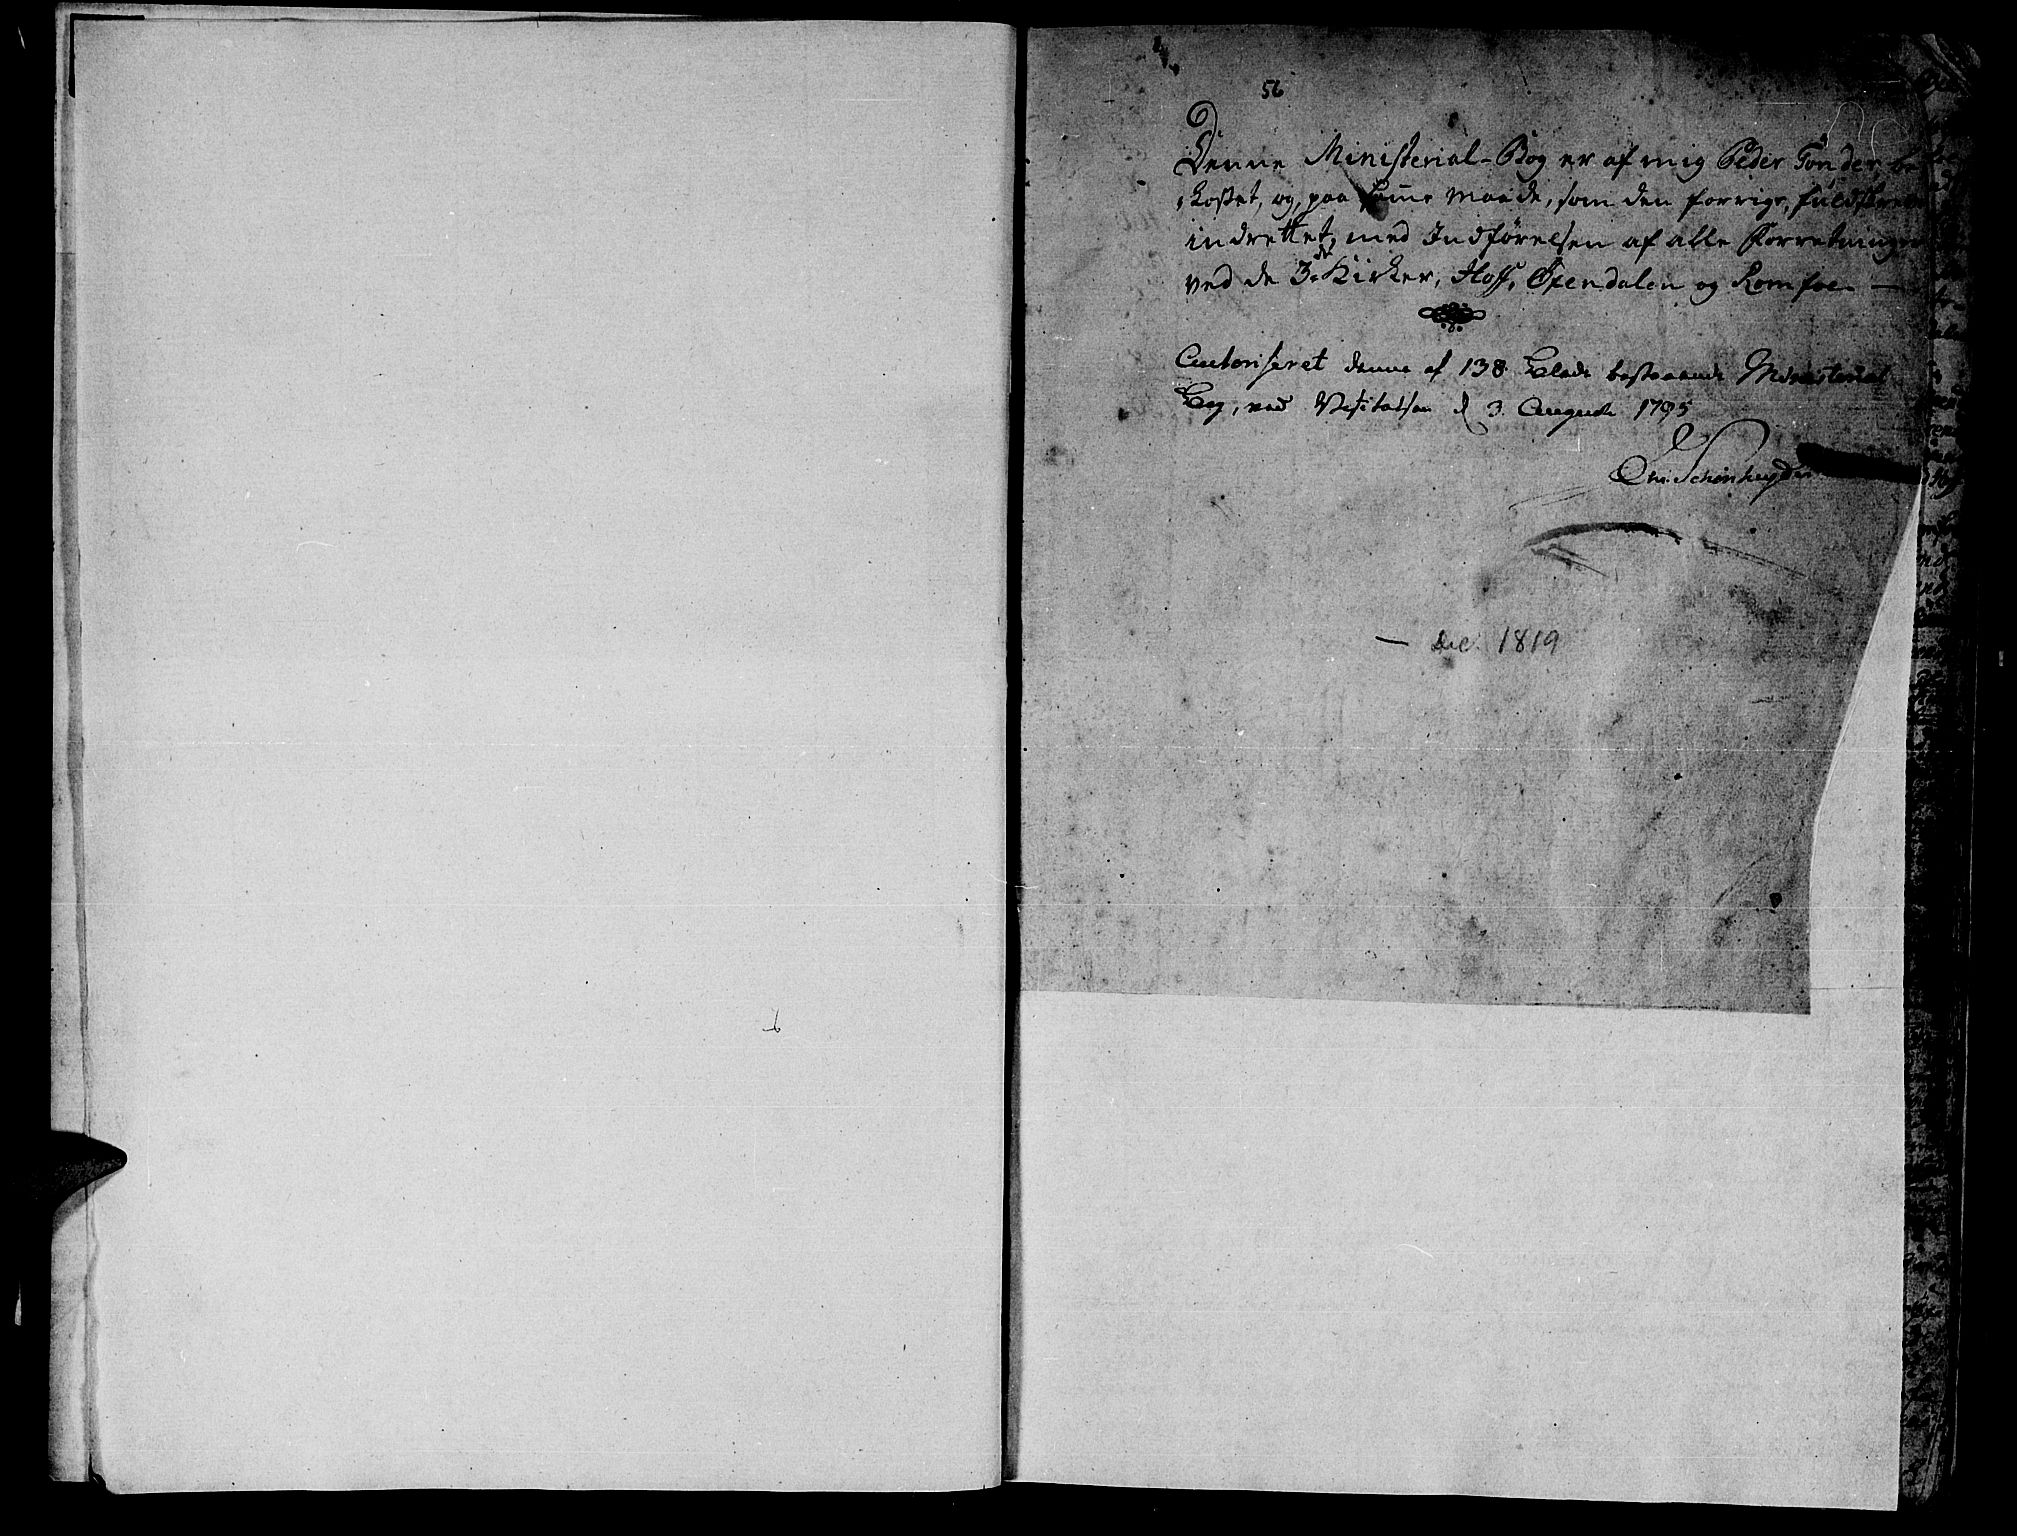 56
Denne Ministerial-Bog er af mig Peder Tønder, be
kostet, og, paa samme Maade, som den forrige,
indrettet, med Indførelsen af alle Forretninger
ved de 3de Kirker, Hoff, Øxendalen og Romfoe. —
Autoriseret denne af 138 Blade bestaaende Ministerial
Bog, ved Visitatsen d 3. August 1795
Schønheyder
— Dec. 1819